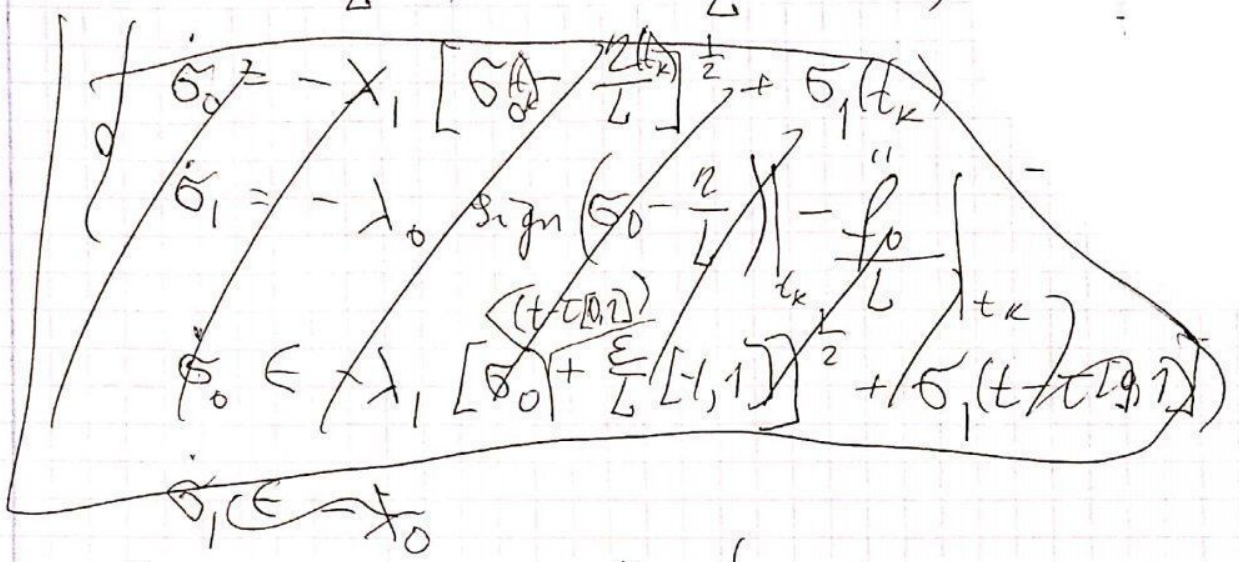 σ̇₀ = - λ₁ [σ₀(t_k) - η(t_k)/L]^{1/2} + σ₁(t_k)
σ̇₁ = - λ₀ sign (σ₀ - η/L)|_{t_k} - f̈₀/L |_{t_k}
σ̇₀ ∈ - λ₁ [σ₀(t-τ[0,1]) + ε/L [-1,1]]^{1/2} + σ₁(t-τ[0,1])
σ̇₁ ∈ - λ₀